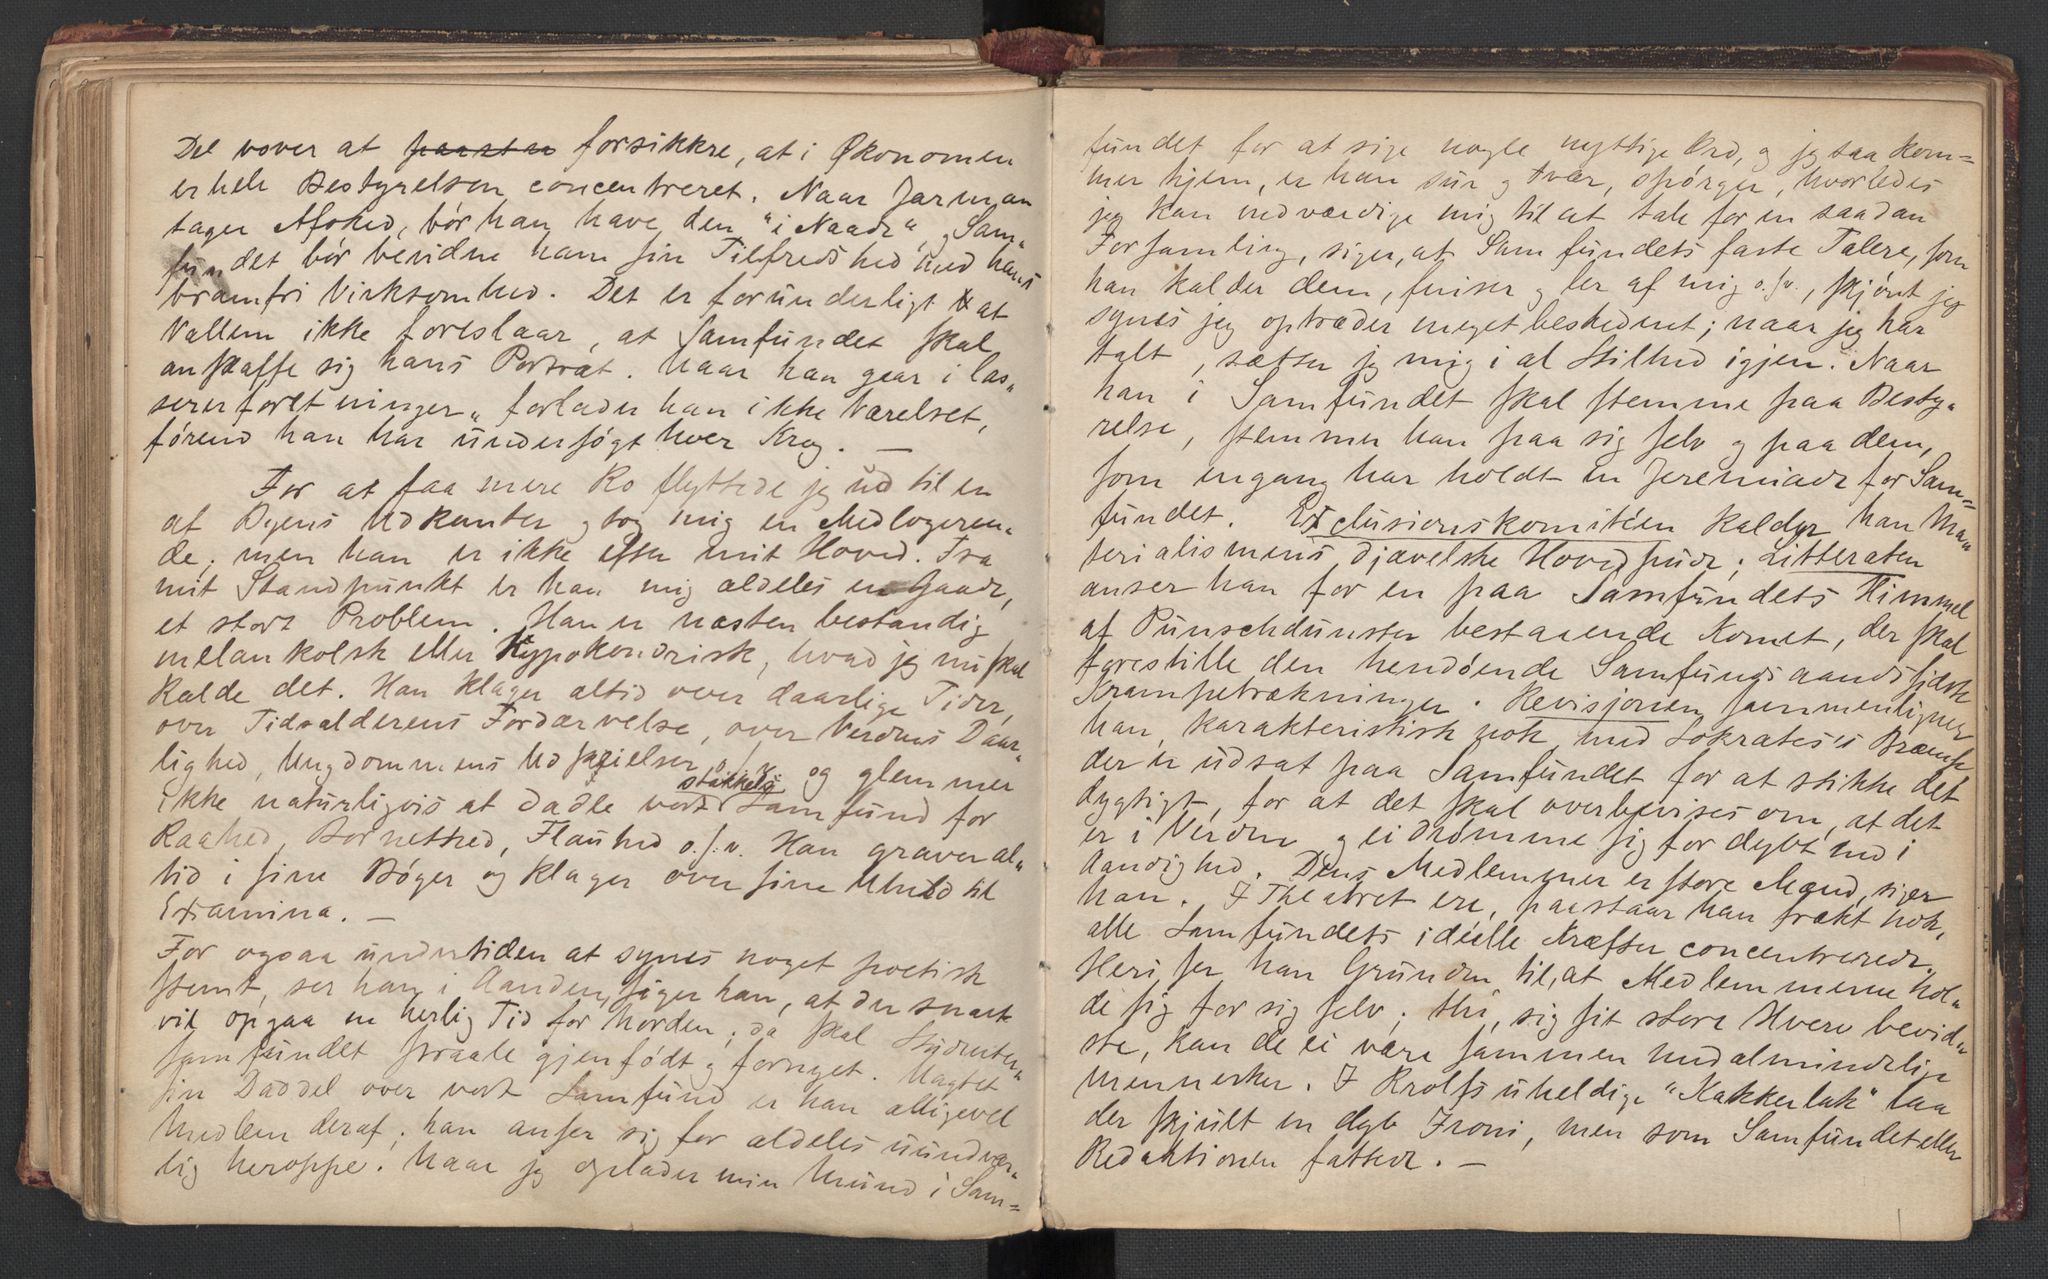 Del vover at paastaa forsikkre, at i Økonomen
er hele Bestyrelsen concentreret. Naar Jarman
tager Afsked, bør han have den "i Naade", Sam„
fundet bør bevidne ham sin Tilfredshed med hans
bramfri Virksomhed. Det er forunderligt at
Vallem ikke foreslaar, at Samfundet skal
anskaffe sig hans Portræt. Naar han gaar i Cas„
sererforretninger„ forlader han ikke Værelset,
førend han har undersøgt hver Krog. —
For at faa mere Ro flyttede jeg ud til en
af Byens Udkanter og tog mig en Medlogeren„
de; men han er ikke efter mit Hoved. Fra
mit Standpunkt er han mig aldeles en Gaade,
et stort Problem. Han er næsten bestandig
melankolsk eller hypokondrisk, hvad jeg nu skal
kalde det. Han klager altid over daarlige Tider,
over Tidsalderens Fordærvelse, over Verdens Daar„
lighed, Ungdommens Udskeielser o.s.v. og glemmer
ikke naturligvis at dadle vort stakkels Samfund for
Raahed, Bornethed, Flauhed o.s.v. Han graver al„
tid i sine Bøger og klager over sine Uheld til
Examina. —
For ogsaa undertiden at synes noget poetisk
stemt, ser han i Aanden, siger han, at der snart
vil opgaa en herlig Tid for Norden; da skal Studenter„
samfundet straale gjenfødt og fornyet. Uagtet
sin Daddel over vort Samfund er han alligevel
Medlem deraf; han anser sig for aldeles uundvær„
lig heroppe. Naar jeg oplader min Mund i Sam=
fundet for at sige nogle nyttige Ord, og jeg saa kom=
mer hjem, er han sur og tvær, spørger, hvorledes
jeg kan nedværdige mig til at tale for en saadan
Forsamling, siger, at Samfundets faste Talere, som
han kalder dem, fniser og ler af mig o.s.v., skjønt jeg
synes jeg optræder meget beskedent; naar jeg har
talt, sætter jeg mig i al Stilhed igjen. Naar
han i Samfundet skal stemme paa Besty„
relse, stemmer han paa sig selv og paa dem,
som engang har holdt en Jeremiade for Sam=
fundet. Exclusionskomitéen kalder han Ma„
terialismens djævelske Hovedpude; Litteraten
anser han for en paa Samfundets Himmel
af Punschdunster bestaaende Komet, der skal
forestille den hendøende Samfundsaands sidste
Krampetrækninger. Revisjonen sammenligner
han, karakteristisk nok, med Sokrates's Bremse
der er udsat paa Samfundet for at stikke det
dygtigt, for at det skal overbevises om, at det
er i Verden og ei drømme sig for dybt ned i
Aandighed. Dens Medlemmer er store Mænd, siger
han. I Theatret ere, paastaar han frækt nok,
alle Samfundets idéelle Kræfter concentrerede.
Heri ser han Grunden til, at Medlemmerne hol„
de sig for sig selv; thi, sig sit store Hverv bevid„
ste, kan de ei være sammen med almindelige
Mennesker. I Krolfs uheldige "Kakkerlak" laa
der skjult en dyb Ironi, men som Samfundet eller
Redaktionen fattede. —